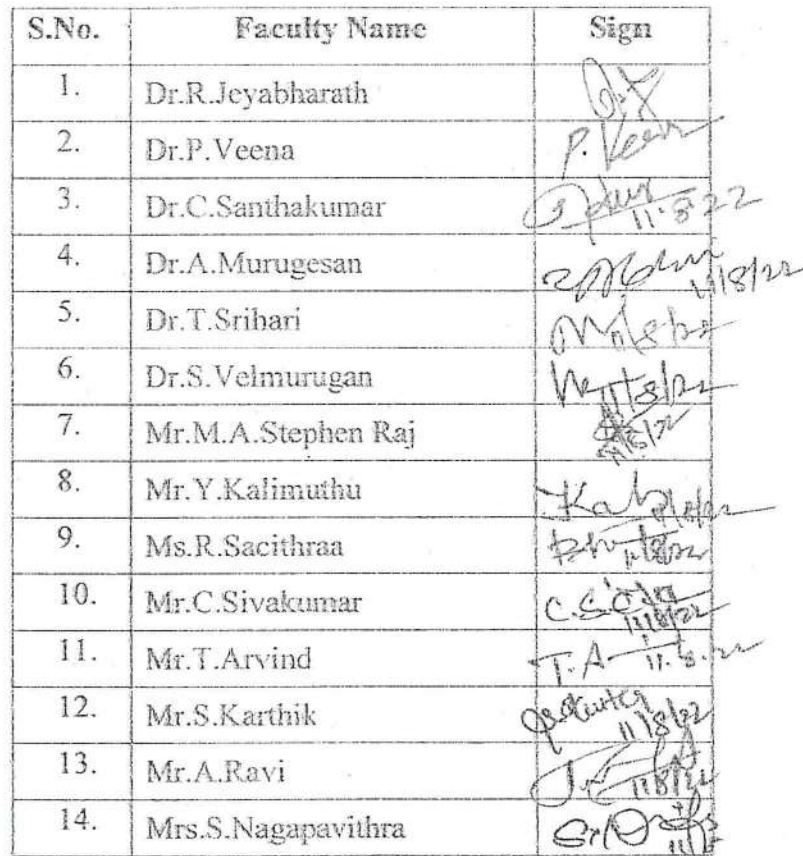 S.No. Faculty Name Sign
1. Dr.R.Jeyabharath
2. Dr.P.Veena P. Veena
3. Dr.C.Santhakumar 11.8.22
4. Dr.A.Murugesan 11/8/22
5. Dr.T.Srihari 11/8/22
6. Dr.S.Velmurugan 11/8/22
7. Mr.M.A.Stephen Raj 11/8/22
8. Mr.Y.Kalimuthu 11/8/22
9. Ms.R.Sacithraa 11/8/22
10. Mr.C.Sivakumar 11/8/22
11. Mr.T.Arvind T.A 11.8.22
12. Mr.S.Karthik 11/8/22
13. Mr.A.Ravi 11/8/22
14. Mrs.S.Nagapavithra